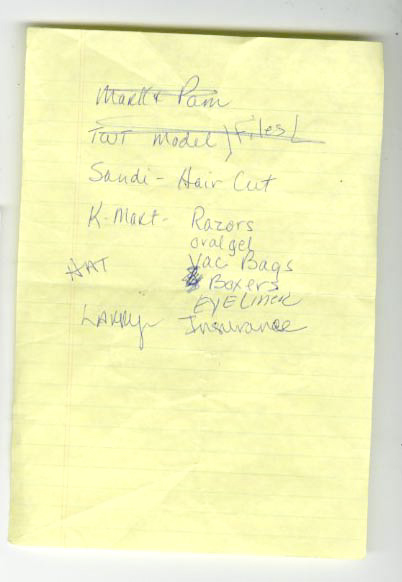 Mark & Pam
TWT Model } Files
Sandi - Hair Cut
K-Mart - Razors
oral gel
Vac Bags
HAT
Boxers
EYELiner
LARRY - Insurance